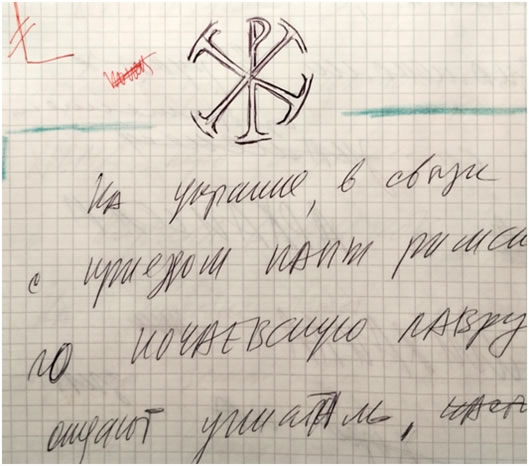 На украине, в связи
с приездом папы римск
го ПОЧАЕВСКУЮ ЛАВРУ
отдают униатАм,